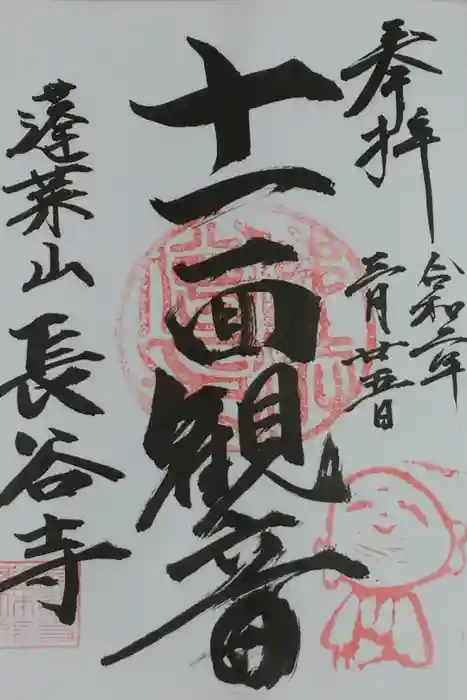 奉拝
令和二年
三月廿五日
十一面観音
蓬莱山長谷寺